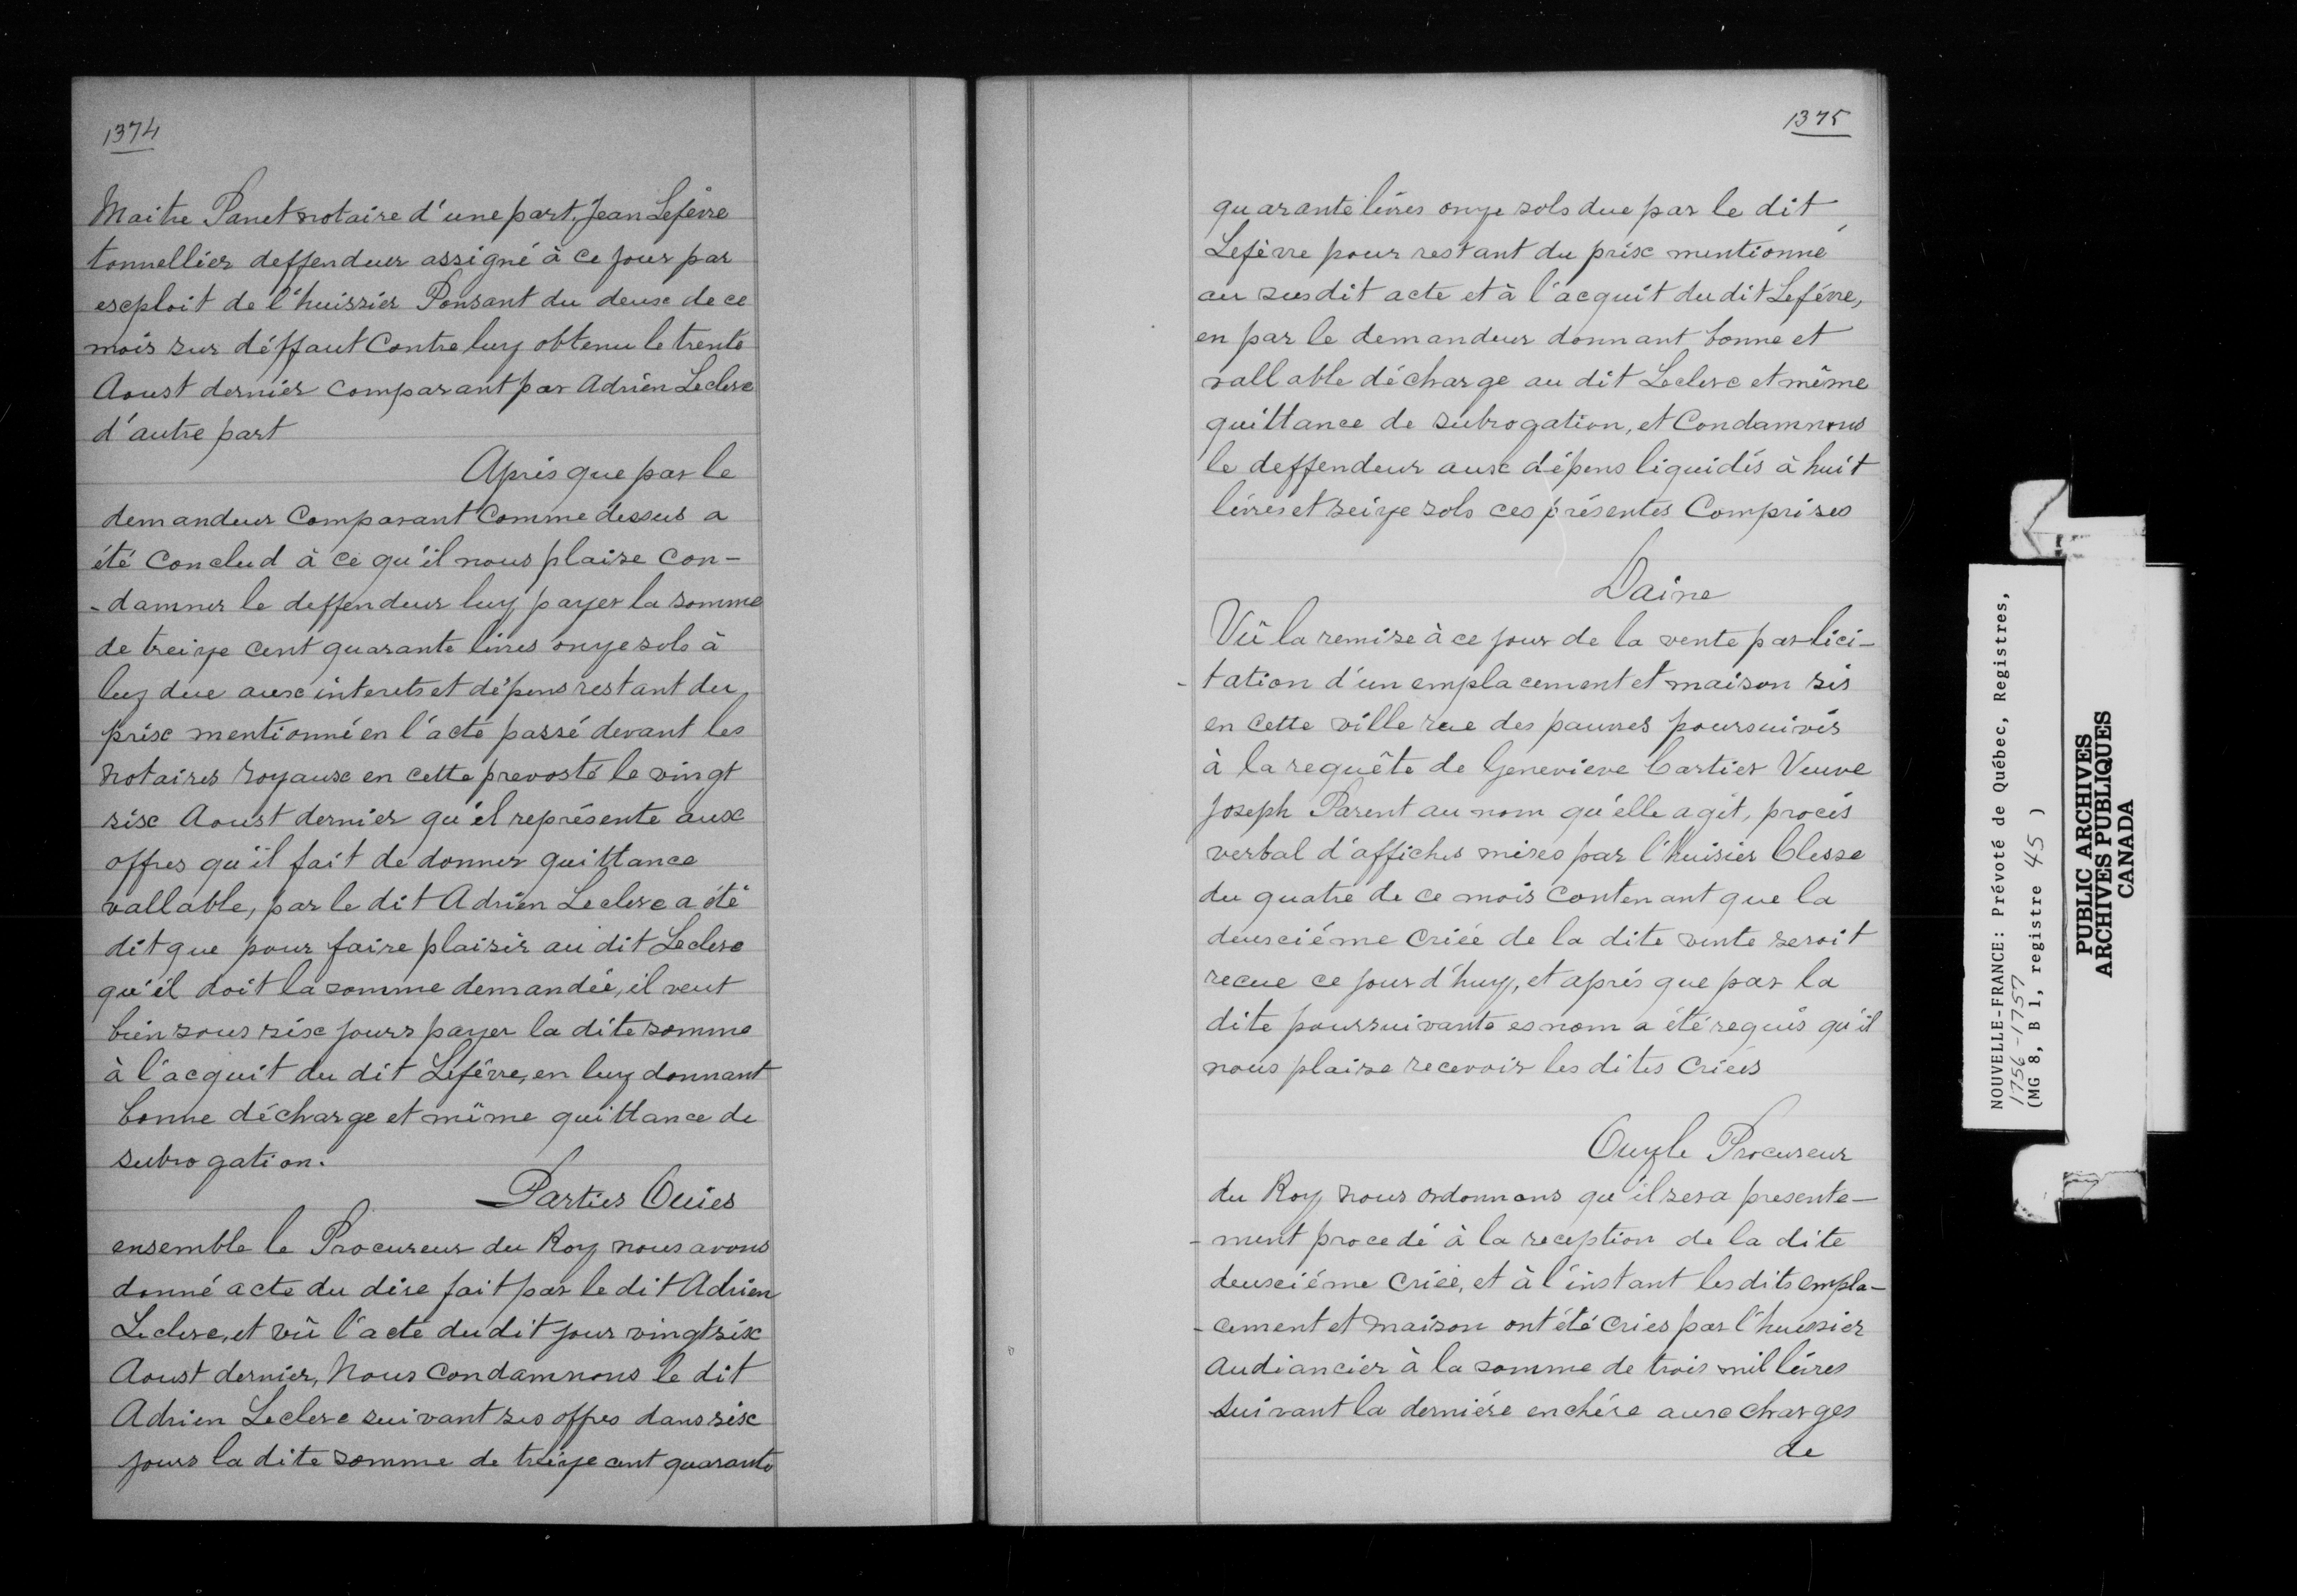 1374
Maitre Panet notaire d'une part, Jean Lefèvre
tonnellier deffendeur assigné à ce jour par
exploit de l'huissier Ponsant du deux de ce
mois sur déffaut Contre luy obtenu le trente
Aoust dernier comparant par Adrien Leclerc
d'autre part
Après que par le
demandeur Comparant Comme dessus a
été Conclud à ce qu'il nous plaise con-
-damner le deffendeur luy payer la somme
de treize cent quarante livres onze sols à
luy due aux interets et dépens restant du
prix mentionné en l'acte passé devant les
Notaires royaux en cette prevosté le vingt
six Aoust dernier qu'il représente aux
offres qu'il fait de donner quittance
vallable, par le dit Adrien Leclerc a été
dit que pour faire plaisir au dit Leclerc
qu'il doit la somme demandée, il veut
bien sous six jours payer la dite somme
à l'acquit du dit Lefèvre, en luy donnant
bonne décharge et même quittance de
subrogation.
Parties Ouies
ensemble le Procureur du Roy nous avons
donné acte du dire fait par le dit Adrien
Leclerc, et vû l'acte du dit jour vingt six
Aoust dernier, Nous Condamnons le dit
Adrien Leclerc suivant ses offres dans six
jours la dite somme de treize cent quarante
1375
quarante livres onze sols due par le dit
Lefèvre pour restant du prix mentionné
au susdit acte et à l'acquit du dit Lefèvre,
en par le demandeur donnant bonne et
vallable décharge au dit Leclerc et même
quittance de subrogation, et Condamnons
le deffendeur aux dépens liquidés à huit
livres et seize sols ces présentes Comprises
Daine
Vû la remise à ce jour de la vente par lici-
-tation d'un emplacement et maison sis
en cette ville rue des pauvres poursuivis
à la requête de Genevieve Cartier Veuve
Joseph Parent au nom qu'elle agit, procès
verbal d'affiches mises par l'huisier Clesse
du quatre de ce mois Contenant que la
deuxciéme Criée de la dite vente seroit
recue ce jour d'huy, et après que par la
dite poursuivante es nom a été requis qu'il
nous plaise recevoir les dites Criées
Ouy le Procureur
du Roy nous ordonnons qu'il sera presente-
-ment procedé à la reception de la dite
deuxciéme Criée, et à l'instant les dits empla-
-cement et maison ont été criés par l'huissier
audiancier à la somme de trois mil livres
suivant la dernière enchére aux charges
de
NOUVELLE-FRANCE: Prévoté de Québec, Registres,
1756-1757
(MG 8, B 1, registre 45 )
PUBLIC ARCHIVES
ARCHIVES PUBLIQUES
CANADA